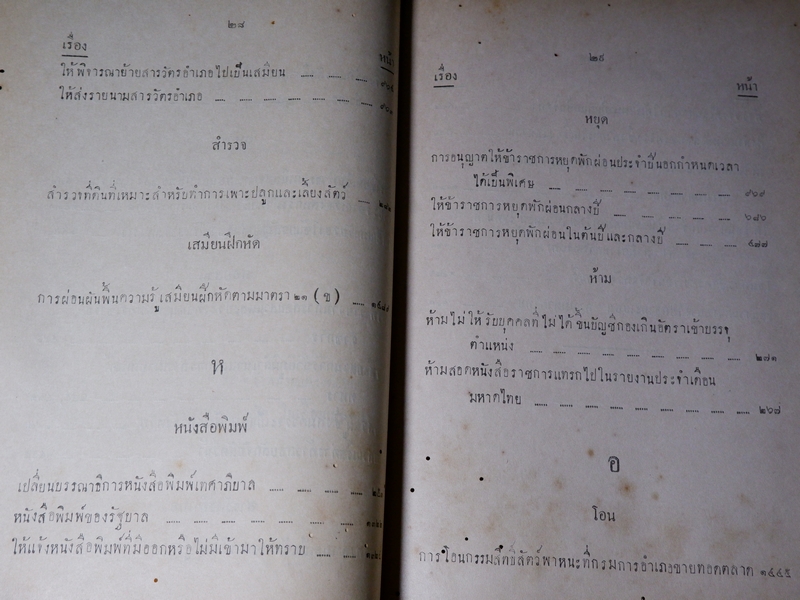 ๒๘
เรื่อง
หน้า
ให้พิจารณาย้ายสารวัตรอำเภอไปเป็นเสมียน
ให้ส่งรายนามสารวัตรอำเภอ
สำรวจ
สำรวจที่ดินที่เหมาะสำหรับทำการเพาะปลูกและเลี้ยงสัตว์
เสมียนฝึกหัด
การผ่อนผันพื้นความรู้เสมียนฝึกหัดตามมาตรา ๒๓ (ซ)
ห
หนังสือพิมพ์
เปลี่ยนบรรณาธิการหนังสือพิมพ์เทศาภิบาล
หนังสือพิมพ์ของรัฐบาล
ให้แจ้งหนังสือพิมพ์ที่มีออกหรือไม่มีเข้ามาให้ทราบ
๒๙
เรื่อง
หน้า
หยุด
การอนุญาตให้ข้าราชการหยุดพักผ่อนประจำปีนอกกำหนดเวลา
ได้เป็นพิเศษ
ให้ข้าราชการหยุดพักผ่อนกลางปี ๖๘๖
ให้ข้าราชการหยุดพักผ่อนในต้นปีและกลางปี
ห้าม
ห้ามไม่ให้รับบุคคลที่ไม่ได้ขึ้นบัญชีกองเกินอัตราเข้าบรรจุ
ตำแหน่ง ๒๗๑
ห้ามสอดหนังสือราชการแทรกไปในรายงานประจำเดือน
มหาดไทย ๒๖๗
อ
โอน
การโอนกรรมสิทธิสัตว์พาหนะที่กรมการอำเภอขายทอดตลาด